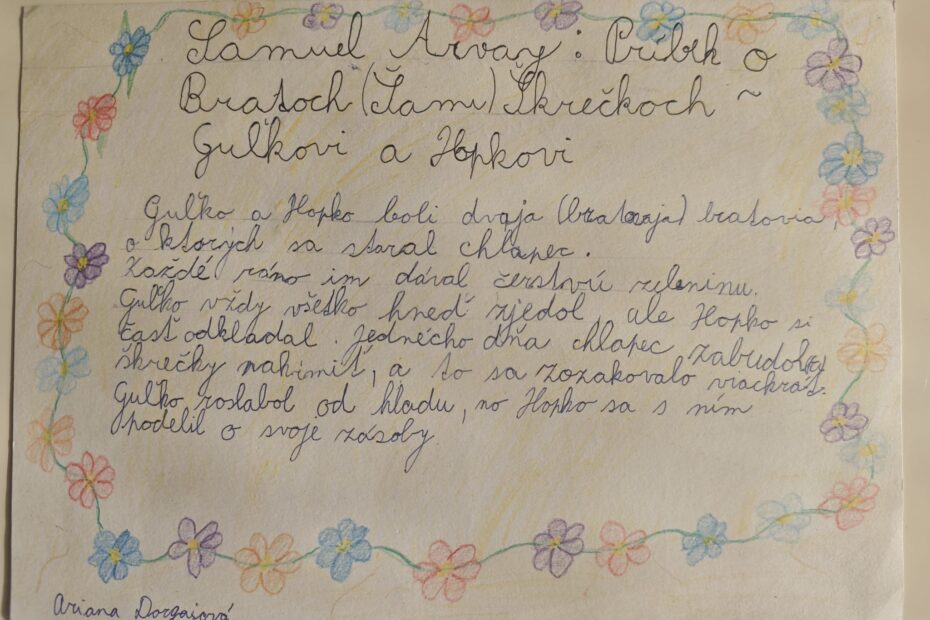 Samuel Arvay: Príbeh o
Bratoch (Šami) Škrečkoch ~
Guľkovi a Hopkovi
Guľko a Hopko boli dvaja bratovia,
o ktorých sa staral chlapec.
Každé ráno im dával čerstvú zeleninu.
Guľko vždy všetko hneď zjedol, ale Hopko si
časť odkladal. Jedného dňa chlapec zabudol
škrečky nakŕmiť, a to sa zozakovalo viackrát.
Guľko zoslabol od hladu, no Hopko sa s ním
podelil o svoje zásoby.
Ariana